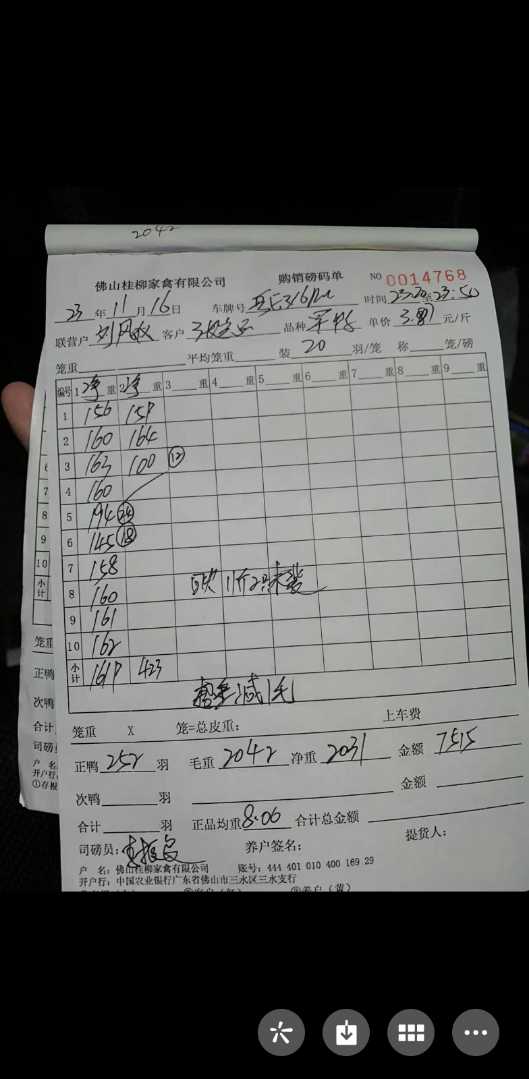 2042
佛山桂柳家禽有限公司 购销磅码单 NO 0014768
23 年 11 月 16 日 车牌号 时间 23:20至23:50
联营户 刘风 客户 品种 单价 3.7 元/斤
笼重 平均笼重 装 20 羽/笼 称 笼/磅
编号 1 净 重 2 净 重 3 重 4 重 5 重 6 重 7 重 8 重 9 重
1 156 159
2 160 164
3 163 100 ⑫
4 160
5 194 ㉔
6 145 ⑱
7 158
8 160
9 161
10 162
小计 1619 423
减1毛
笼重 X 笼=总皮重: 上车费
正鸭 252 羽 毛重 2042 净重 2031 金额 7515
次鸭 羽 金额
合计 羽 正品均重 8.06 合计总金额
司磅员: 养户签名: 提货人:
户 名: 佛山桂柳家禽有限公司 账号: 444 401 010 400 169 29
开户行: 中国农业银行广东省佛山市三水区三水支行
6
7
8
9
10
小计
笼重
正鸭
次鸭
合计
司磅员
户 名
开户行
①存根